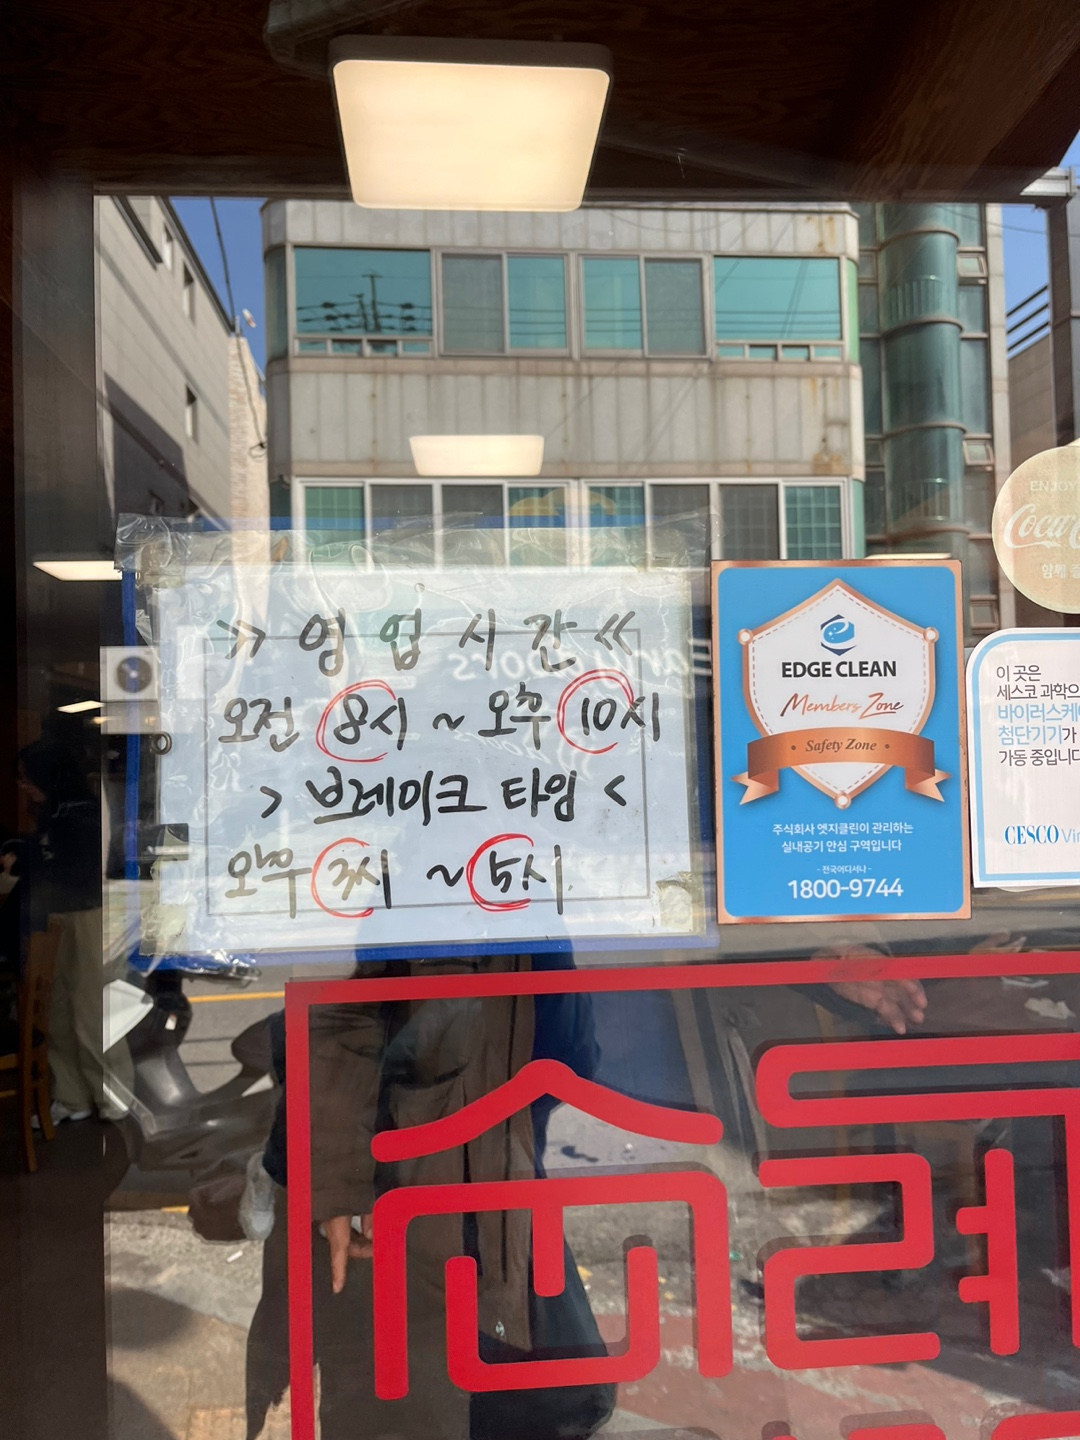 >> 영업시간 <<
오전 8시 ~ 오후 10시
> 브레이크 타임 <
오후 3시 ~ 5시
EDGE CLEAN
Members Zone
• Safety Zone •
주식회사 엣지클린이 관리하는
실내공기 안심 구역입니다
- 전국어디서나 -
1800-9744
ENJOY
Coca
함께
이 곳은
세스코 과학으
바이러스케어
첨단기기가
가동 중입니다
CESCO Vir